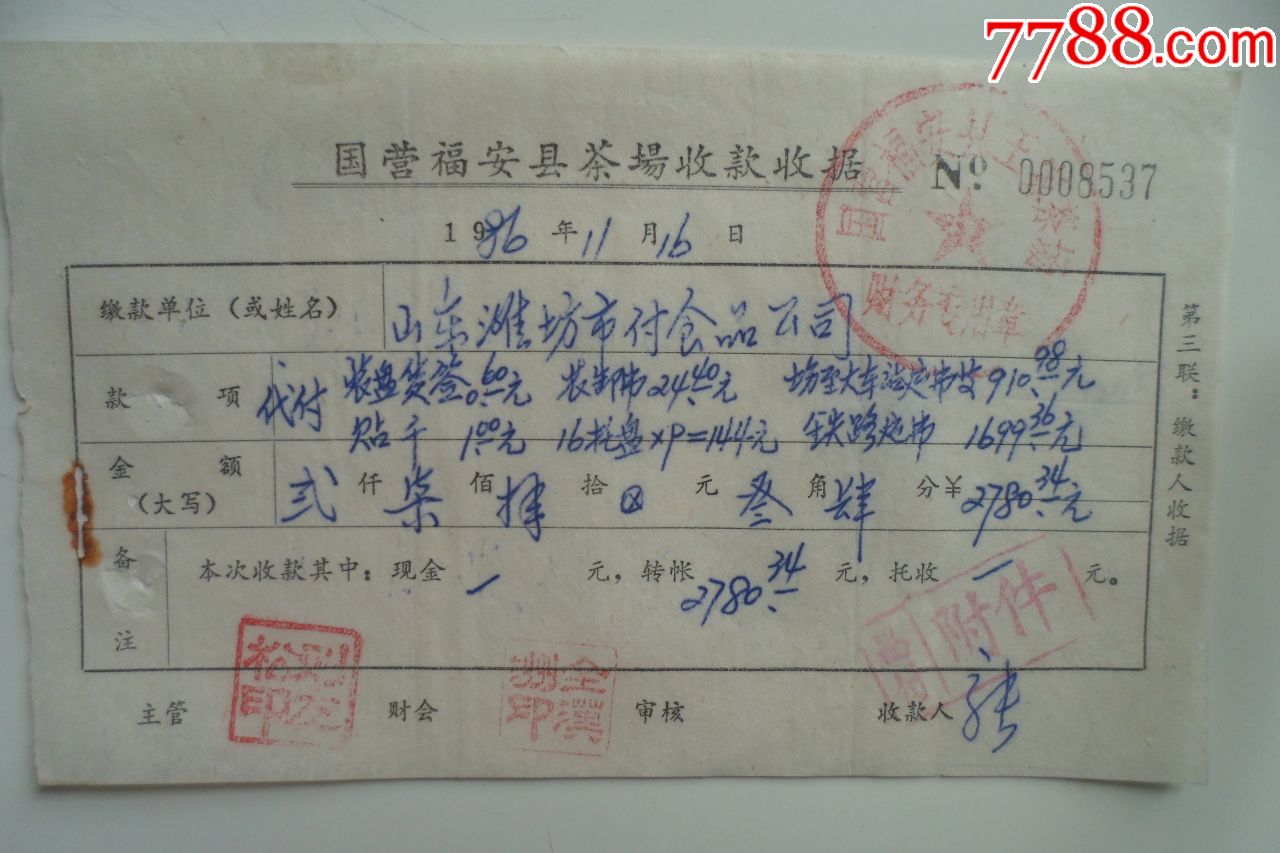 7788.com
国营福安县茶場收款收据 Nº 0008537
1986 年 11 月 16 日
缴款单位（或姓名） 山东潍坊市付食品公司
款 项 代付 装盘货签0.60元 装卸带24.40元 坊至大车站运带费910.98元
贴干 1.00元 16托盘×9=144元 铁路运带 1699.36元
金 额（大写） 弍 仟 柒 佰 捌 拾 0 元 叁 角 肆 分 ¥2780.34元
备注 本次收款其中：现金 一 元，转帐 2780.34 元，托收 一 元。
主管 财会 审核 收款人 张
第三联：缴款人收据
财务专用章
附件